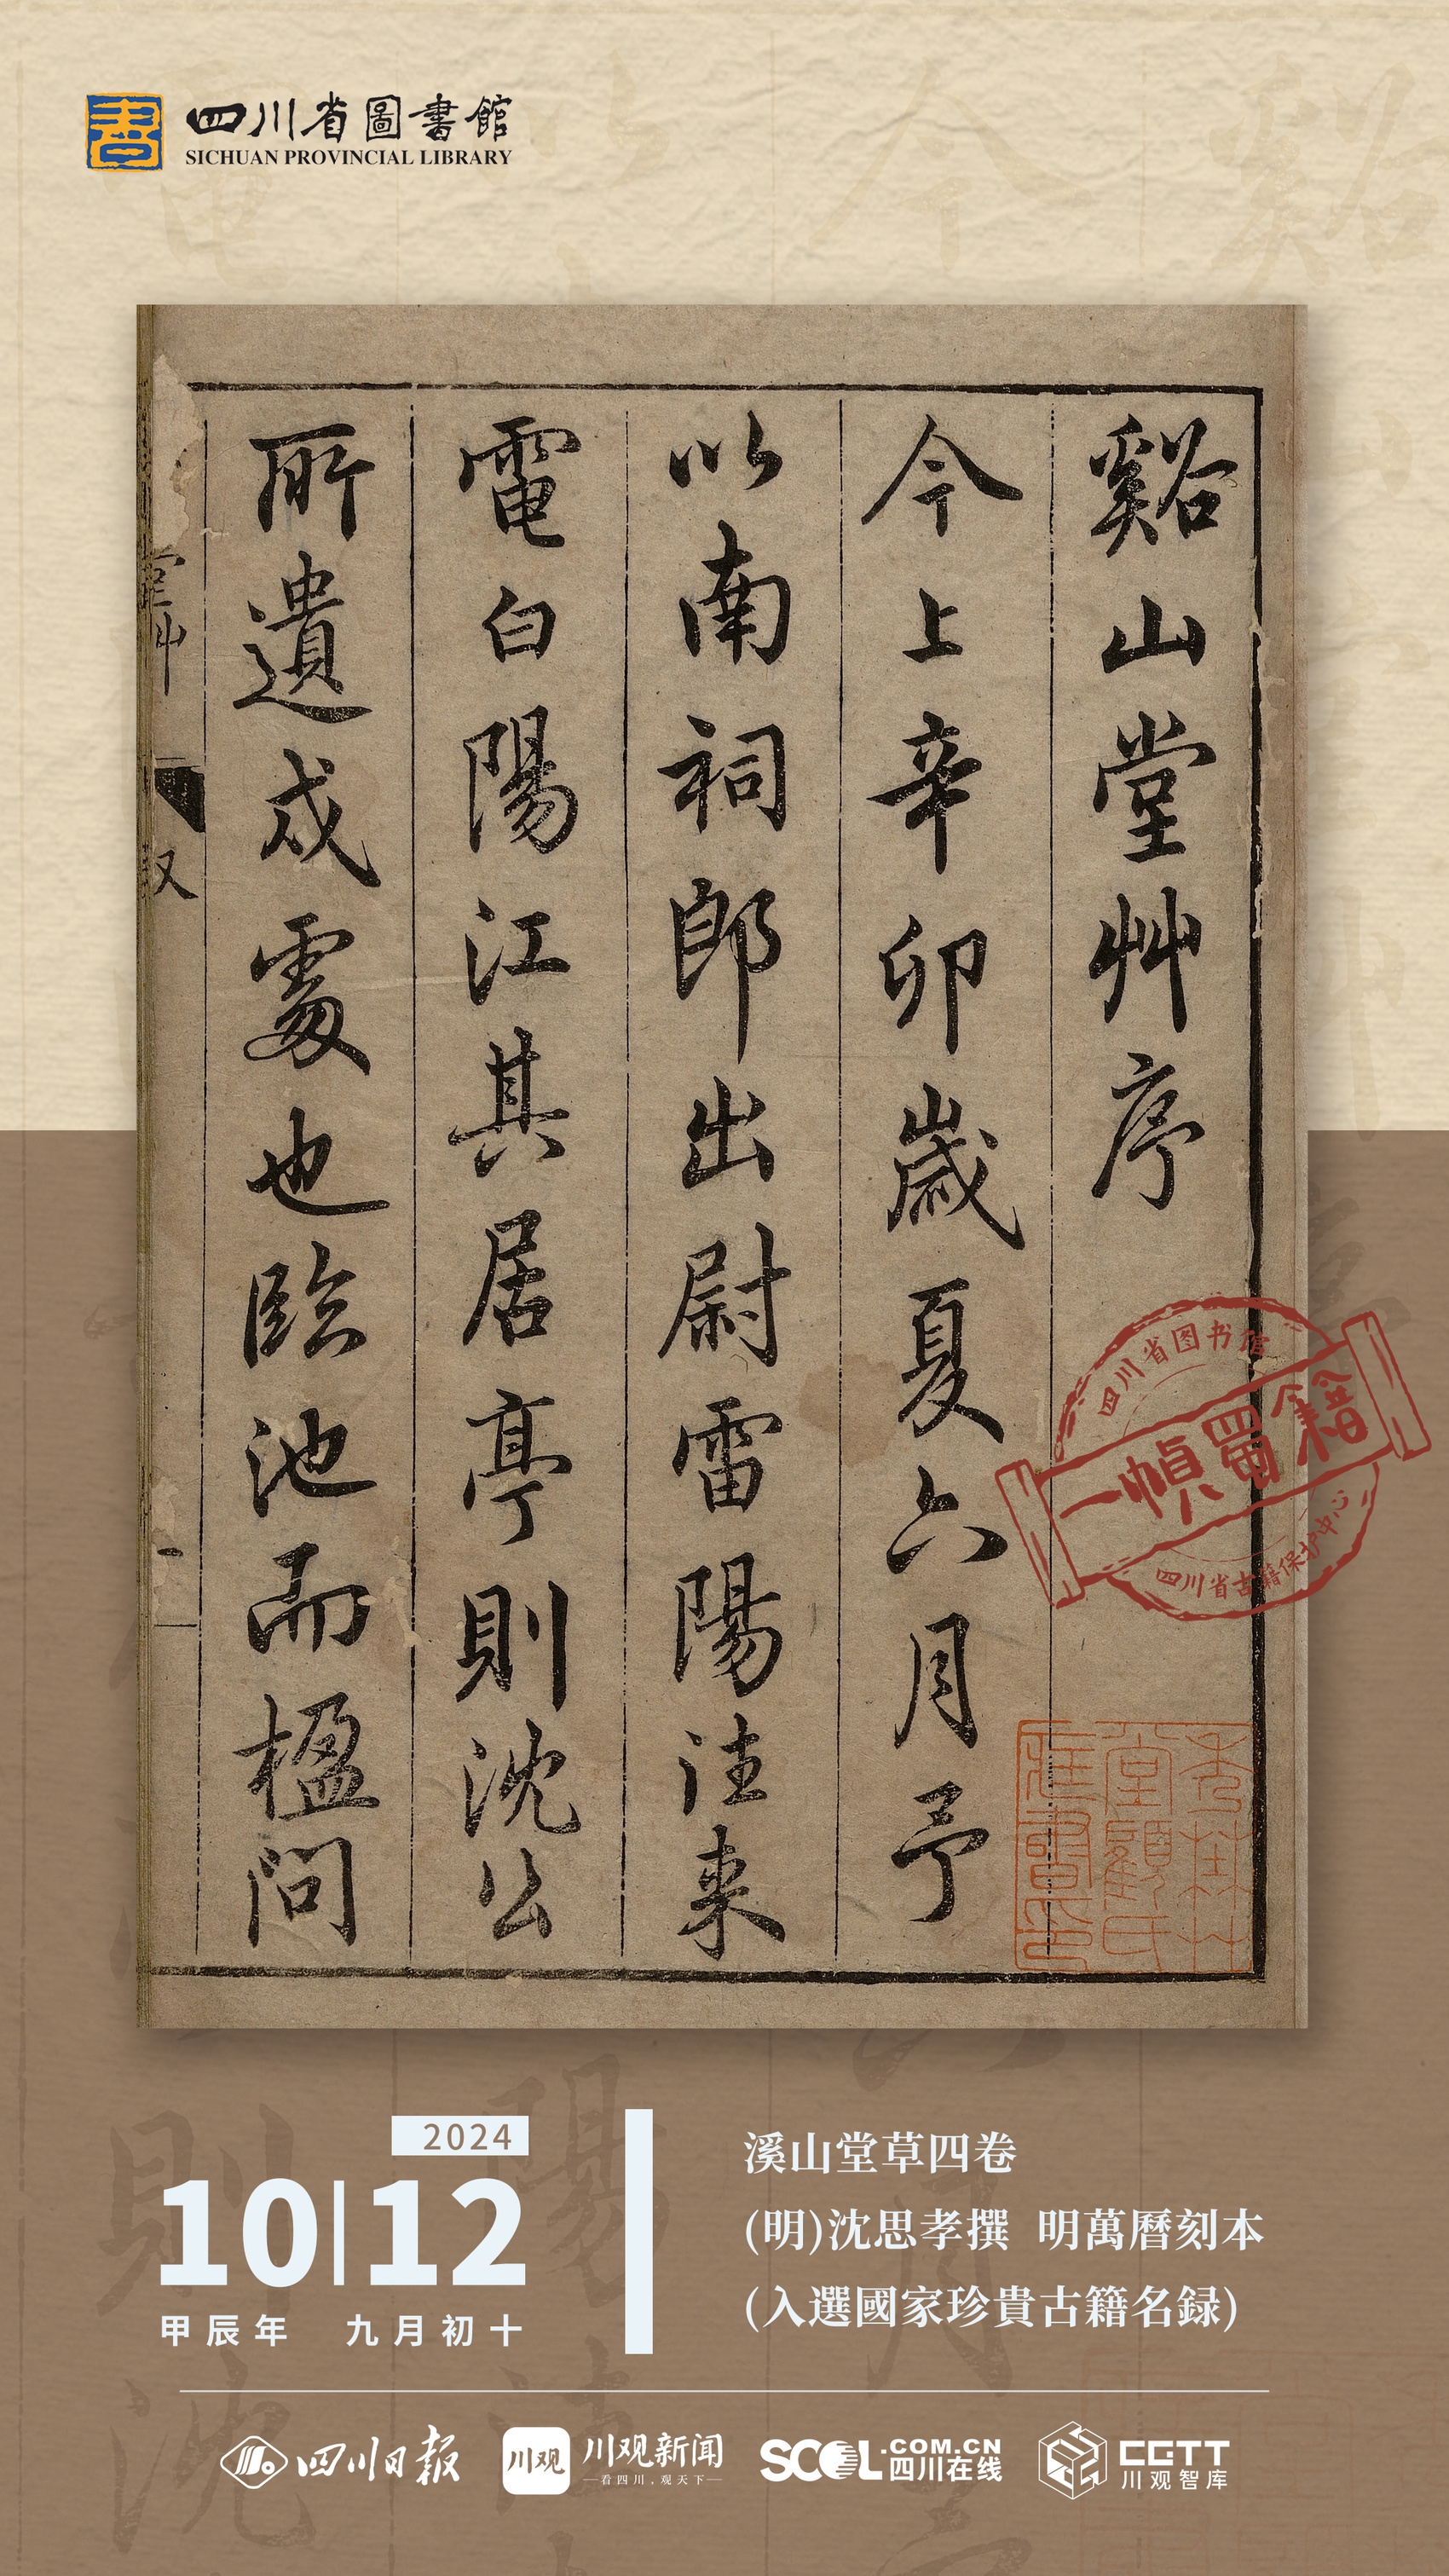 四川省圖書館
SICHUAN PROVINCIAL LIBRARY
谿山堂艸序
今上辛卯歲夏六月予
以南祠郎出尉雷陽往来
電白陽江其居亭則沈公
所遺戍處也臨池而楹問
一
四川省图书馆
一幀蜀籍
四川省古籍保护中心
秀埜草
堂顧氏
藏書印
2024
10|12
甲辰年 九月初十
溪山堂草四卷
(明)沈思孝撰 明萬曆刻本
(入選國家珍貴古籍名録)
四川日报
川观
川观新闻
看四川,观天下
SCOL.COM.CN
四川在线
CGTT
川观智库